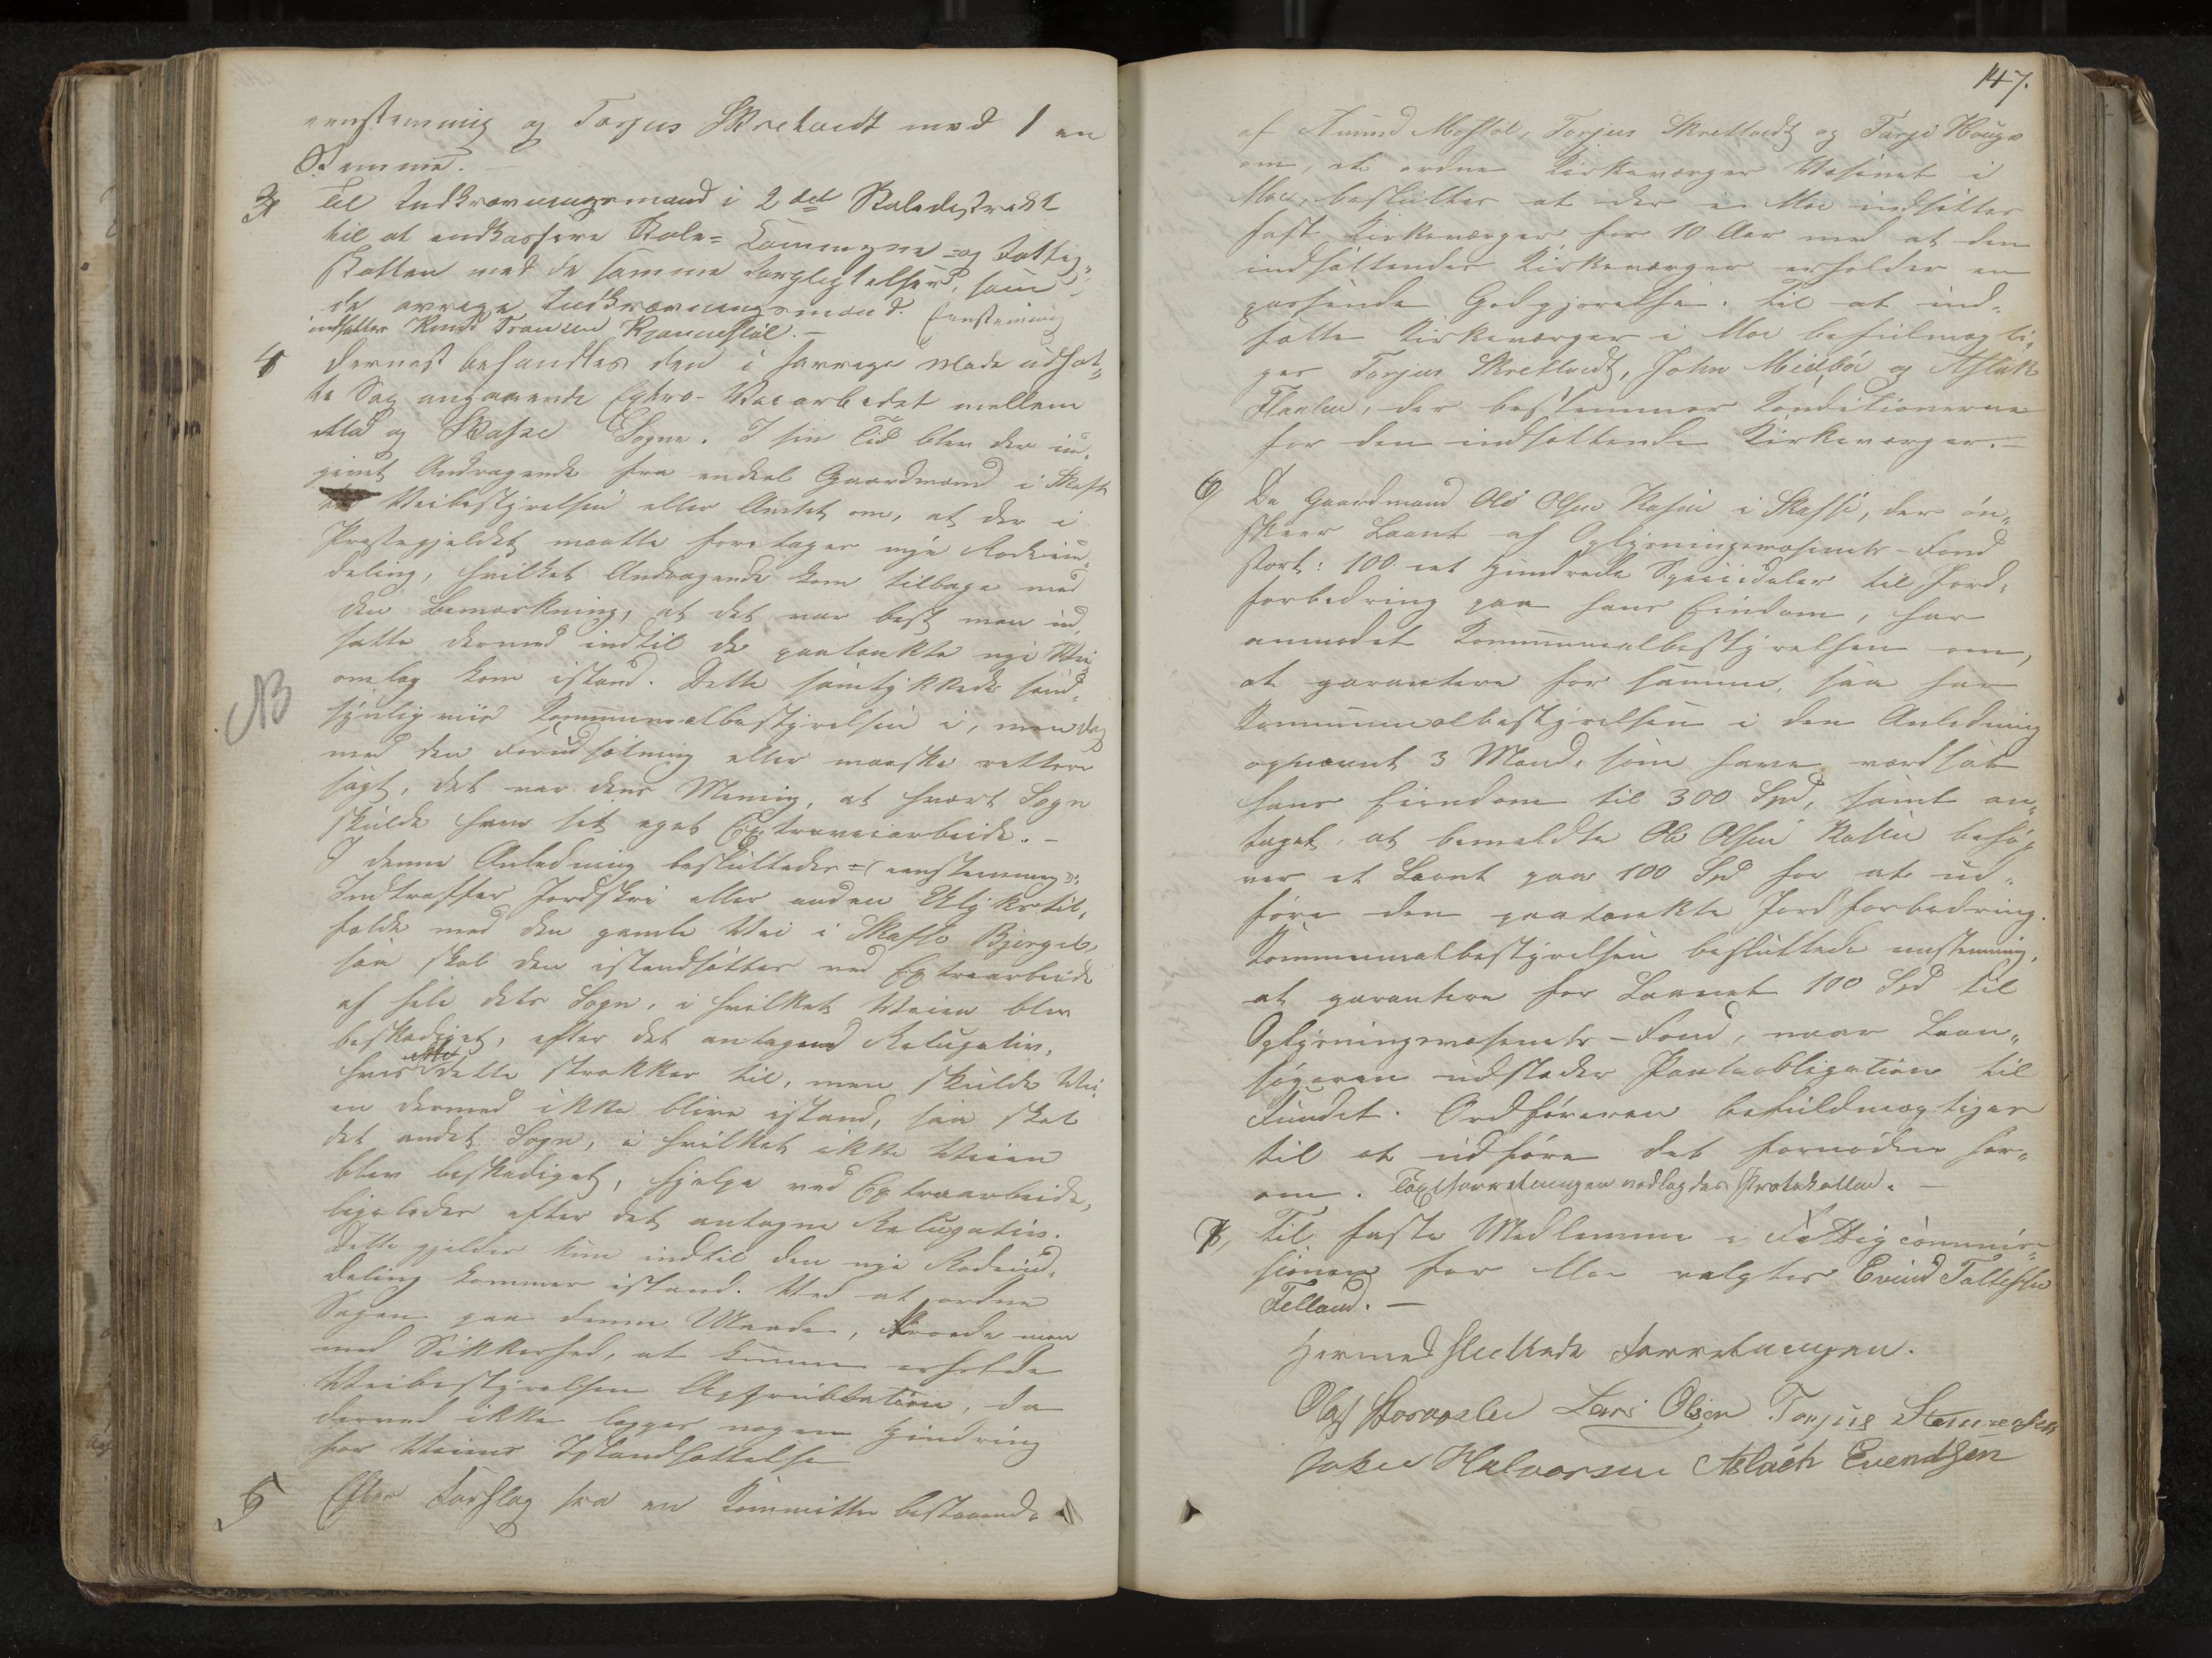 eenstemmig og Torjus Skretvedt med 1 en
Stemme. –
3 Til Indkrævningsmand i 2det Skoledistrikt
til at indkassere Skole- Commune- og Fattig„
skatten med de samme Forpligtelser, som
de øvrige Indkrævningsmænd. Eenstemmig
indsattes Knud Transen
4 Dernest behandles den i forrige Møde udsat„
te Sag angaaende Extra-Veiarbeidet mellem
Mo og Skafse Sogne. I sin Tid blev der in„
givet Andragende fra endeel Gaardmænd i Skafse
Veibestyrelsen eller Amtet om, at der i
Præstegjeldet maatte foretages nye Rodein„
deling, hvilket Andragende kom tilbage med
den Bemærkning, at det var best man ind
satte dermed indtil de paatænkte nye Vei
omlæg kom istand. Dette samtykkede sand„
synligviis Kommunealbestyrelsen i, men dog
med den Forudsætning eller maaske rettere
sagt, det var dens Mening, at hvert Sogn
skulde have sit eget Extraveiarbeide. –
I denne Anledning besluttedes eenstemmig:
Indtræffer Jordskri eller anden Ulykkestil„
fælde med den gamle Vei i Skafse Bjerget
saa skal den istandsættes ved Extraarbeide
af hele dets Sogn, i hvilket Veien blev
beskadiget, efter det antagend Relugativ,
hvis ikke dette strækker til, men skulde Vei„
en dermed ikke blive istand, saa skal
det andet Sogn, i hvilket ikke Veien
blev beskadiget, hjelpe ved Extraarbeide,
ligeledes efter det antagne Relugativ.
Dette gjelder kun indtil den nye Rodeind„
deling kommer istand. Ved at ordne
Sagen paa denne Maade, troede man
med Sikkerhed, at kunne erholde
Veibestyrelsen Approbbation, da
derved ikke lægges nogen Hindring
for Veiens Istandsættelse
NB
5 Efter Forslag fra en Kommitte bestaaende
147.
af Amund Mosføl, Torjus Skretvedt og Tarje Houge
om, at ordne Kirkeværger Væsenet i
Moe, besluttes at der i Moe indsættes
fast Kirkeværger for 10 Aar med at den
indsættendes Kirkeværger erholder en
passende Godgjørelse. Til at ind„
sætte Kirkeværger i Moe befulmægti„
ges Torjus Skretvedt, John Midbøe og Aslak
der bestemmer Konditionerne
for den indsættende Kirkeværger. –
6, Da Gaardmand Ole Olsen Kasin i Skafse, der øn„
skeer Laant af Oplysningsvæsenets-Fond
stort: 100 et Hundrede Speciedaler til Jord„
forbedring paa hans Eiendom, har
anmodet Kommunealbestyrelsen om,
at garantere for samme, saa har
Kommunealbestyrelsen i den Anledning
opnævnt 3 Mænd, som have værdsat
hans Eiendom til 300 Spd, samt an„
taget, at bemeldte Ole Olsen Kasin behø„
ver et Laant paa 100 Spd for at ud„
føre den paatænkte Jordforbedring.
Kommunealbestyrelsen besluttede enstemmig,
at garantere for Laanet 100 Spd til
Oplysningsvæsenets-Fond, naar Laan„
søgeren udsteder Panteobligation til
Fundet. Ordføreren befuldmægtiges
til at udføre det fornødne her„
om. Taxtforretningen vedlagdes Protokollen. –
7, Til faste Medlemme i Fattigcommis„
sionen for Moe valgtes Evind Tallefsen
Felland. –
Hermed sluttede Forretningen.
Olaf Lars Olsen Torjus
John Halvorsen Aslach Evendsen